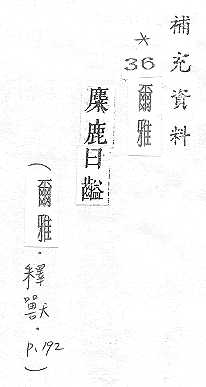 補充資料
*36 爾雅
麋鹿曰齸
(爾雅·釋獸·p.192)